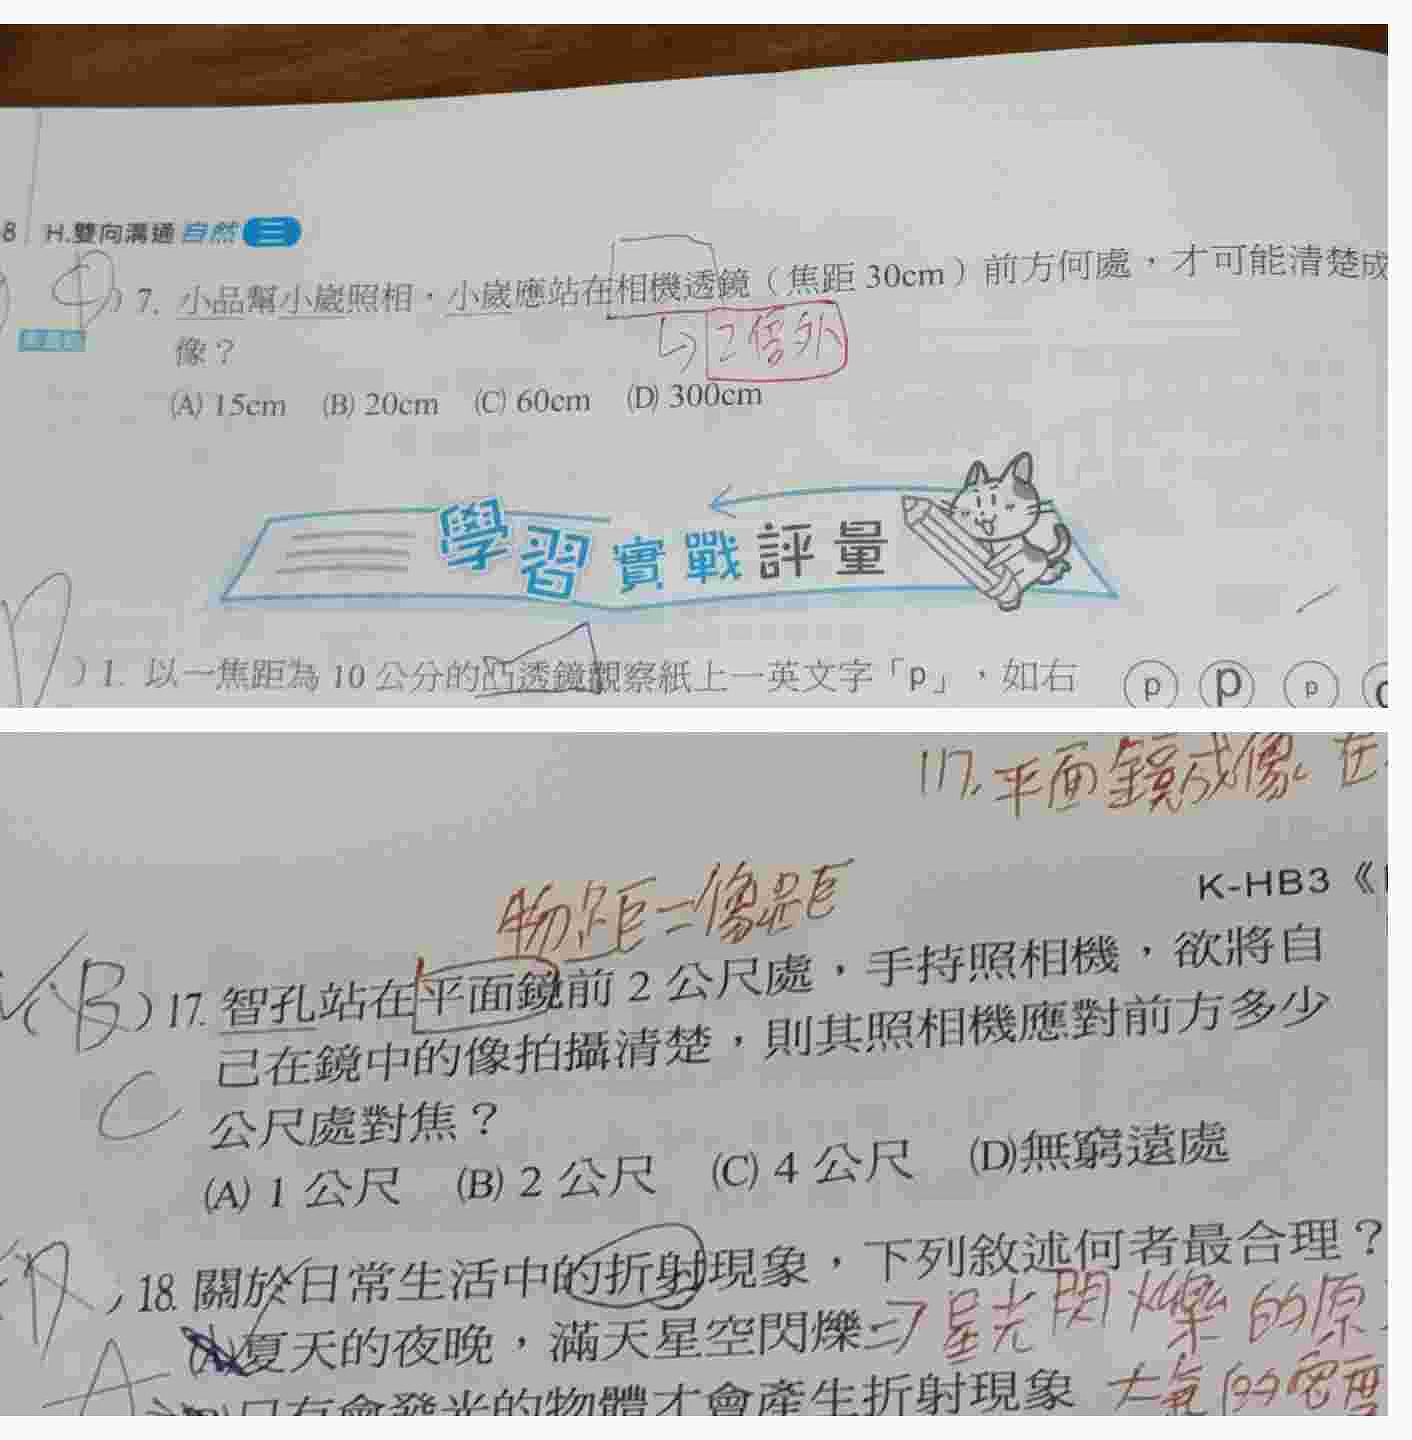 8 H.雙向溝通 自然 三
(D) 7. 小品幫小崴照相，小崴應站在相機透鏡（焦距 30cm）前方何處，才可能清楚成
像？
↳ 2倍外
(A) 15cm (B) 20cm (C) 60cm (D) 300cm
學習實戰評量
) 1. 以一焦距為 10 公分的凸透鏡觀察紙上一英文字「p」，如右 p p p
117. 平面鏡成像 在
K-HB3《
物距=像距
(B) 17. 智孔站在平面鏡前 2 公尺處，手持照相機，欲將自
己在鏡中的像拍攝清楚，則其照相機應對前方多少
C 公尺處對焦？
(A) 1 公尺 (B) 2 公尺 (C) 4 公尺 (D)無窮遠處
) 18. 關於日常生活中的折射現象，下列敘述何者最合理？
(A)夏天的夜晚，滿天星空閃爍⇒星光閃爍的原
A 只有會發光的物體才會產生折射現象 大氣的密度